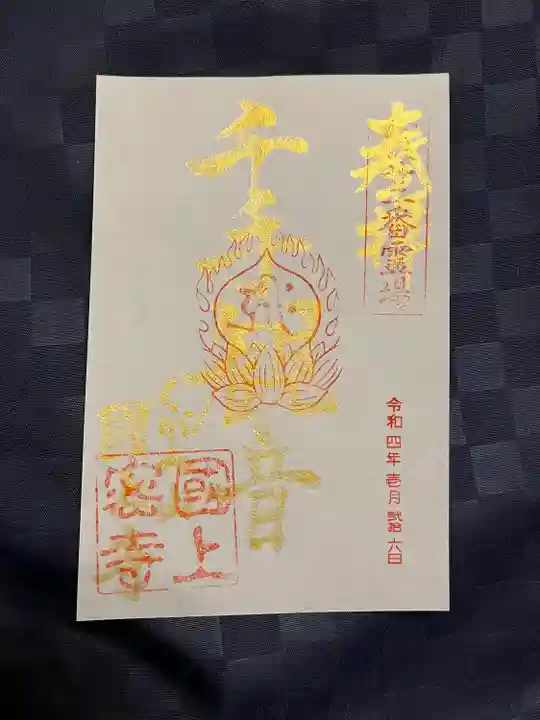 奉拝
番霊場
千手観音
國上
寺
令和四年壱月弐拾六日